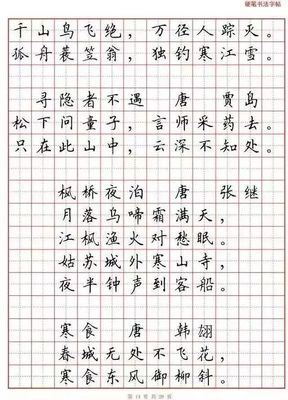 硬笔书法字帖
千山鸟飞绝，万径人踪灭。
孤舟蓑笠翁，独钓寒江雪。
寻隐者不遇 唐 贾岛
松下问童子，言师采药去。
只在此山中，云深不知处。
枫桥夜泊 唐 张继
月落乌啼霜满天，
江枫渔火对愁眠。
姑苏城外寒山寺，
夜半钟声到客船。
寒食 唐 韩翃
春城无处不飞花，
寒食东风御柳斜。